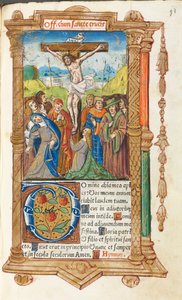 Off. cium sancte crucis
Omine labia mea ap
eries Et os meum annun
ciabit laudem tuam.
Deus in adiutorium
meum intende. Domine
ad adiuvandum me
festina. Gloria patri
et filio et spiritui san
cto. Sicut erat in principio et nunc et semper
et in secula seculorum Amen. Hymnus.